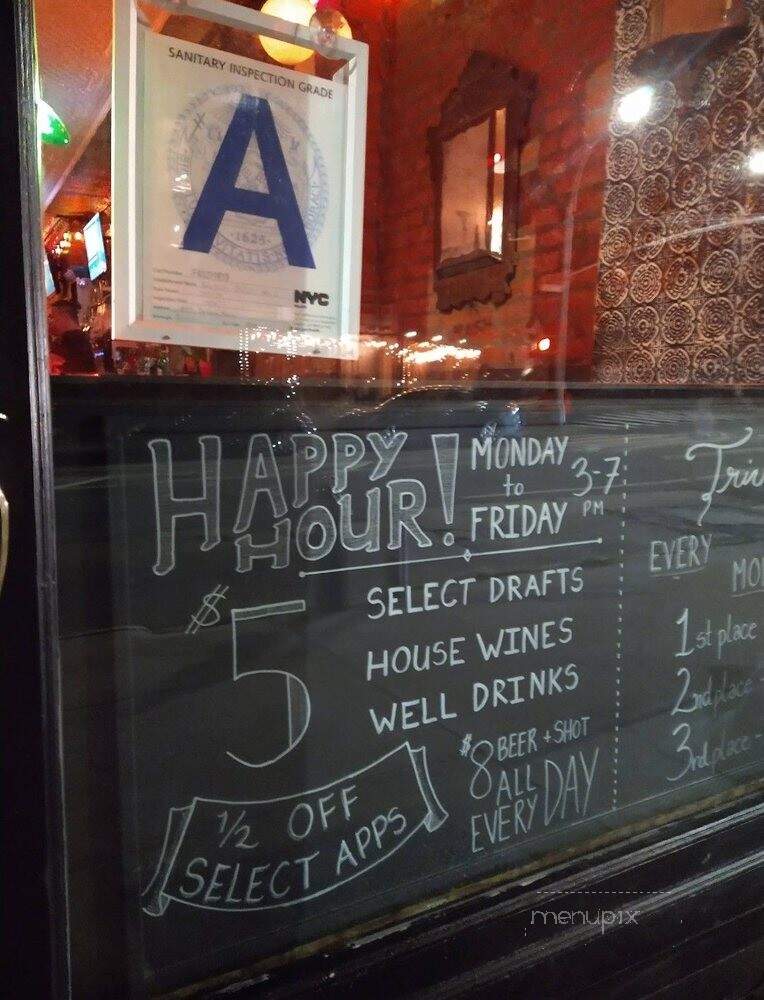 SANITARY INSPECTION GRADE
A
1625
NYC
HAPPY HOUR!
MONDAY to FRIDAY
3-7 PM
$5
SELECT DRAFTS
HOUSE WINES
WELL DRINKS
1/2 OFF
SELECT APPS
$8 BEER + SHOT
ALL DAY
EVERY
Triv
EVERY
MO
1st place
2nd place -
3rd place -
menupix